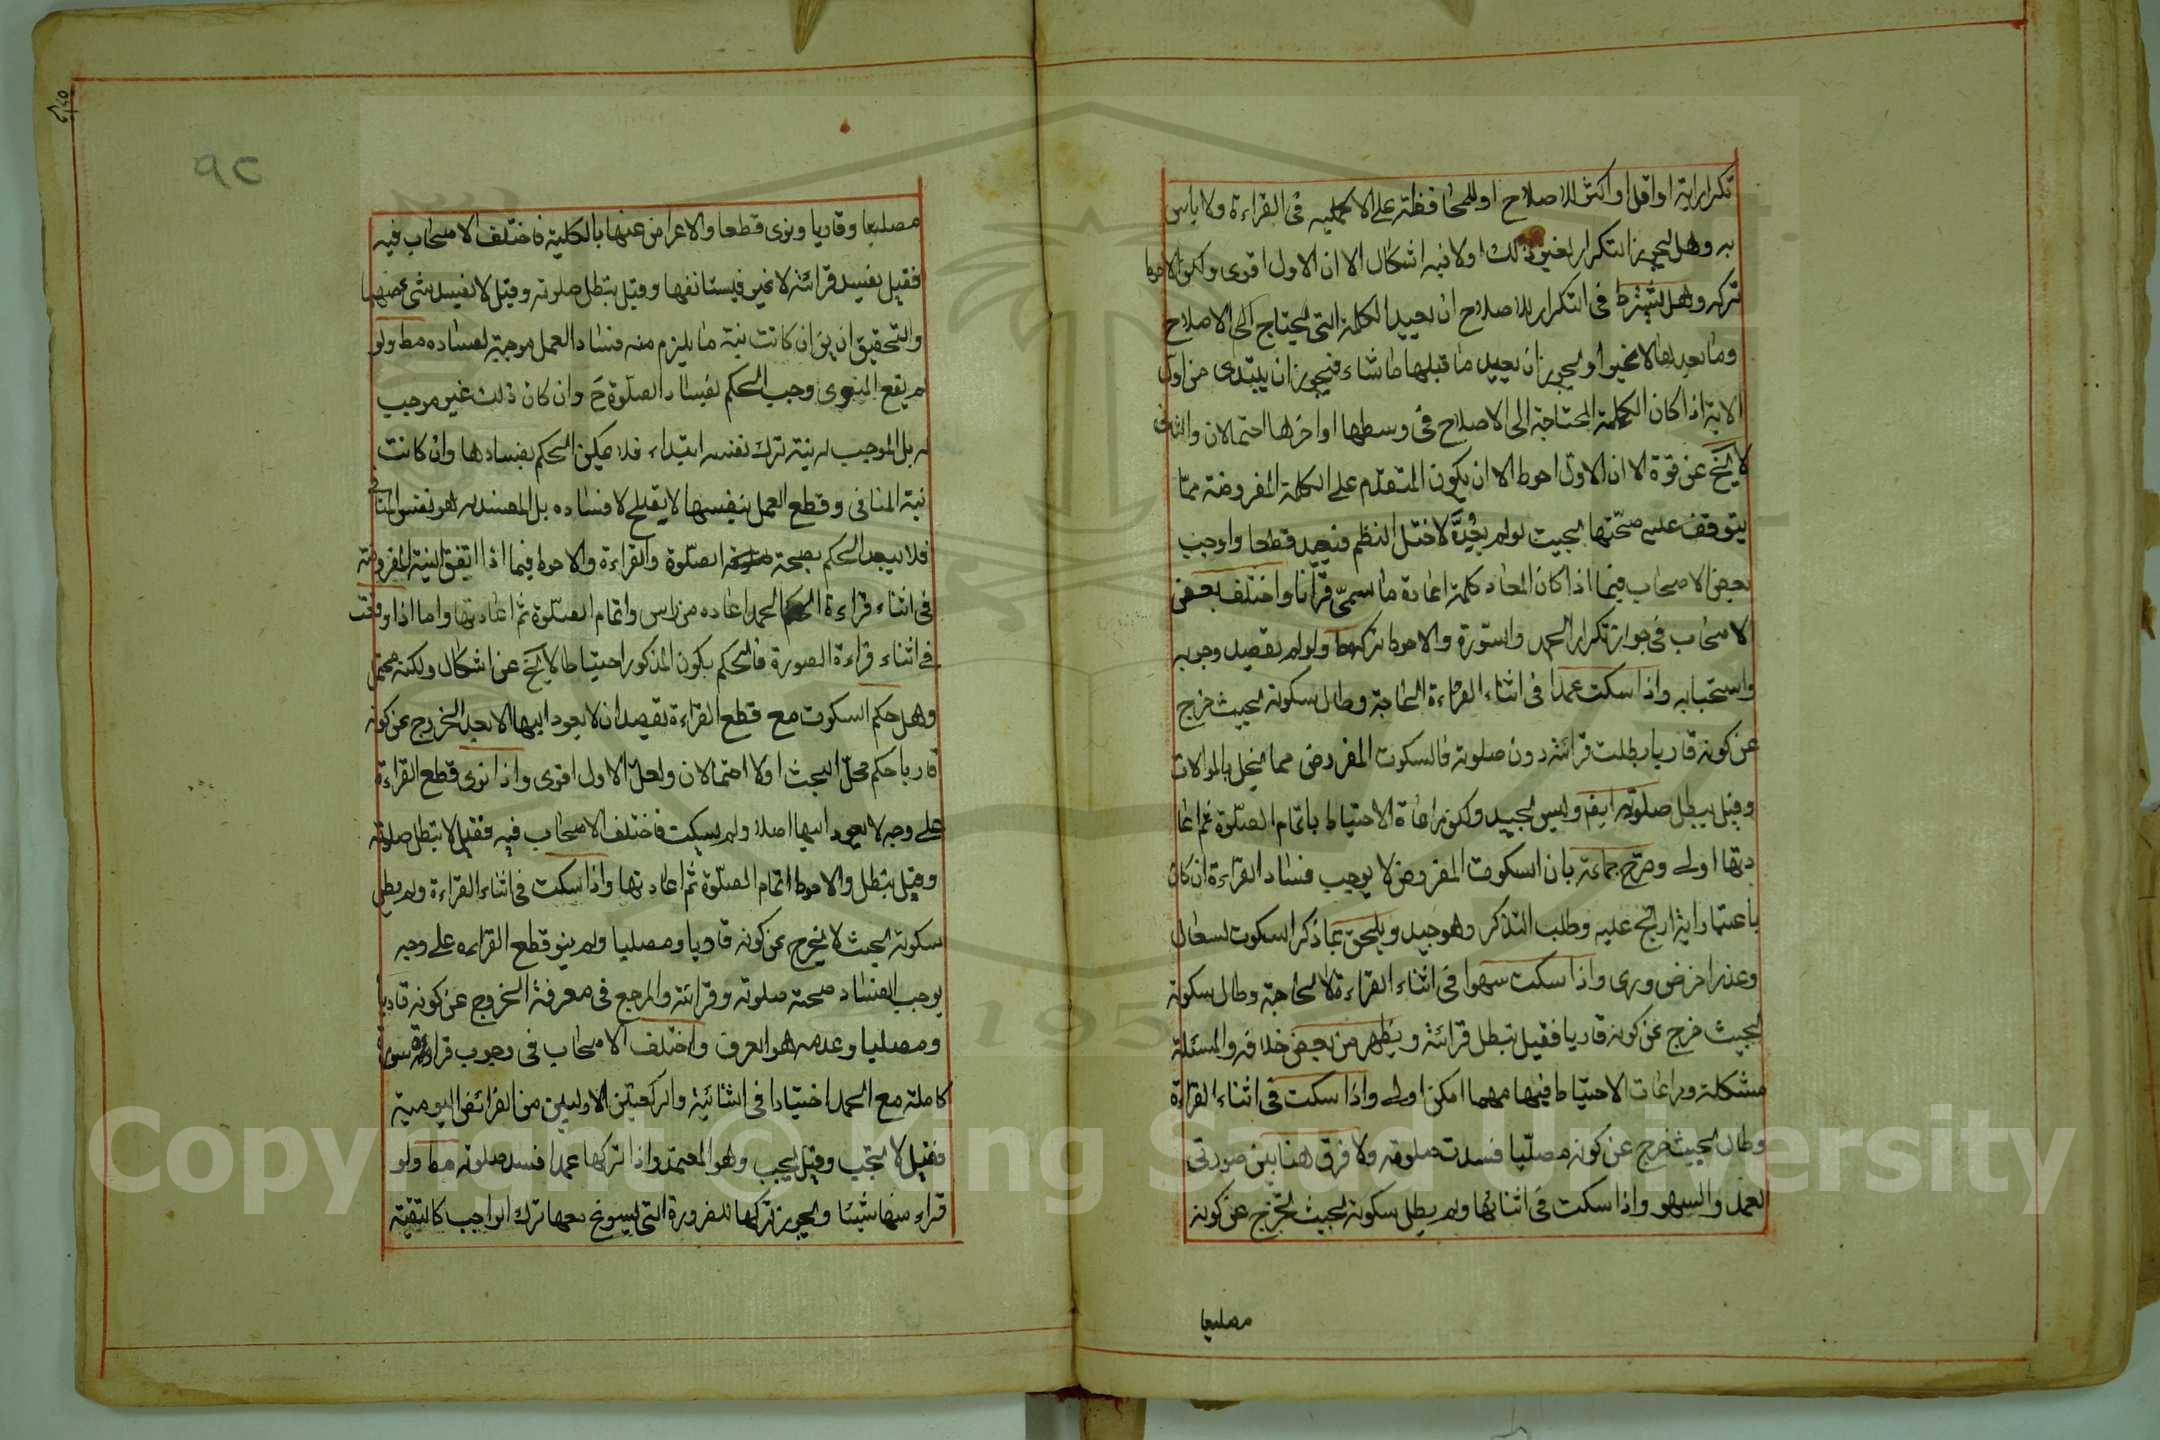 تكرار اية او اقل او اكثر للاصلاح او للمحافظة على الاكملية فى القراءة ولا باس
به وهل يجوز التكرار لغير ذلك اولا فيه اشكال الا ان الاول اقوى ولكن الاحوط
تركه وهل يشترط فى التكرار للاصلاح ان يعيد الكلمة التى يحتاج الى الاصلاح
وما بعدها لا غير او يجوز ان يعيد ما قبلها ما شاء فيجوز ان يبتدى من اول
الاية اذا كان الكلمة المحتاجة الى الاصلاح فى وسطها او اخرها احتمالان والثانى
لا يخ عن قوة الا ان الاول احوط الا ان يكون المتقدم على الكلمة المفروضة مما
يتوقف عليه صحتها بحيث لو لم يعد لاختل النظم فيعيد قطعا واوجب
بعض الاصحاب فيما اذا كان المعاد كلمة اعادة ما يسمى قرانا واختلف بعض
الاصحاب فى جواز تكرار الحمد والسورة والاحوط تركه ولو لم يقصد وجوبه
واستحبابه واذا سكت عمدا فى اثناء القراءة لا لحاجة وطال سكوته بحيث خرج
عن كونه قاريا بطلت قرائته دون صلوته فالسكوت المفروض مما يخل بالموالات
وقيل يبطل صلوته ايضا وليس بجيد ولكن مراعاة الاحتياط باتمام الصلوة ثم اعا
دتها اولى وصرح جماعة بان السكوت المفروض لا يوجب فساد القراءة ان كان
باعتبار انه ارتج عليه وطلب التذكر وهو جيد ويلحق بما ذكر السكوت لسعال
وعذر اخر ضرورى واذا سكت سهوا فى اثناء القراءة لا لحاجة وطال سكوته
بحيث خرج عن كونه قاريا فقيل تبطل قرائته ويظهر من بعض خلافه والمسئلة
مشكلة ومراعات الاحتياط فيها مهما امكن اولى واذا سكت فى اثناء القراءة
وطال بحيث خرج عن كونه مصليا فسدت صلوته ولا فرق هنا بين صورتى
العمد والسهو واذا سكت فى اثنائها ولم يطل سكوته بحيث يخرج عن كونه
مصليا
٩٢
مصليا وقاريا ونوى قطعها والاعراض عنها بالكلية فاختلف الاصحاب فيه
فقيل يفسد قرائته لا غير فيستانفها وقيل تبطل صلوته وقيل لا يفسد شى منهما
والتحقيق ان يق ان كانت نية ما يلزم منه فساد العمل موجبة لفساده مط ولو
لم يقع المنوى وجب الحكم بفساد الصلوة ح وان كان ذلك غير موجب
له بل الموجب له نية ترك نفسه ابتداء فلا يمكن الحكم بفسادها وان كانت
نية المنافى وقطع العمل بنفسها لا يقدح لا فساده بل المفسد له هو نفس المنافى
فلا يبعد الحكم بصحة الصلوة والقراءة والاحوط فيما اذا اتفق النية المفروضة
فى اثناء قراءة الحمد اعاده من راس واتمام الصلوة ثم اعادتها واما اذا وقعت
فى اثناء قراءة السورة فالحكم بكون المذكور احتياطا لا يخ عن اشكال ولكنه محتمل
وهل حكم السكوت مع قطع القراءة بقصد ان لا يعود اليها الا بعد الخروج عن كونه
قاريا حكم محل البحث اولا احتمالان ولعل الاول اقوى واذا نوى قطع القراءة
على وجه لا يعود اليها اصلا ولم يسكت فاختلف الاصحاب فيه فقيل لا تبطل صلوته
وقيل تبطل والاحوط اتمام الصلوة ثم اعادتها واذا سكت فى اثناء القراءة ولم يطل
سكوته بحيث لا يخرج عن كونه قاريا ومصليا ولم ينو قطع القراءة على وجه
يوجب الفساد صحة صلوته وقرائته والمرجع فى معرفة الخروج عن كونه قاريا
ومصليا وعدمه هو العرف واختلف الاصحاب فى وجوب قراءة سورة
كاملة مع الحمد اختيارا فى الثنائية والركعتين الاوليين من الفرائض اليومية
فقيل لا يجب وقيل يجب وهو المعتمد واذا تركها عمدا فسد صلوته مط ولو
قراء منها شيئا ويجوز تركها للضرورة التى يسوغ معها ترك الواجب كالتقية
Copyright © King Saud University
1957